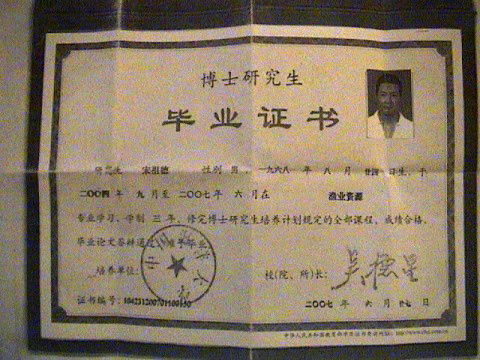 博士研究生
毕业证书
研究生 宋祖德 性别 男,一九六八 年 八 月 廿四 日生,于
二〇〇四年 九月至 二〇〇七年 六月在 渔业资源
专业学习,学制 三 年,修完博士研究生培养计划规定的全部课程,成绩合格,
毕业论文答辩通过,准予毕业
培养单位:
校(院、所)长: 吴德星
证书编号:104231200701100150
二〇〇七 年 六 月 廿七 日